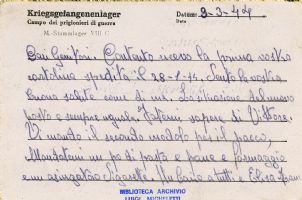 Kriegsgefangenenlager
Campo dei prigionieri di guerra
M.-Stammlager VIII C
Datum: 9-3-44
Data
Cari Genitori. Contento ricevo la prima vostra
cartolina spedita il 28-1-44. Sento la vostra
buona salute come di me. La situazione del nuovo
posto è sempre uguale. Fatemi sapere di Vittore.
Vi mando il secondo modulo per il pacco,
Mandatemi un po di pasta e pane e formaggio
e un asciugatoio Sigarette. Un bacio a tutti e Elisa
BIBLIOTECA ARCHIVIO
LUIGI MICHELETTI